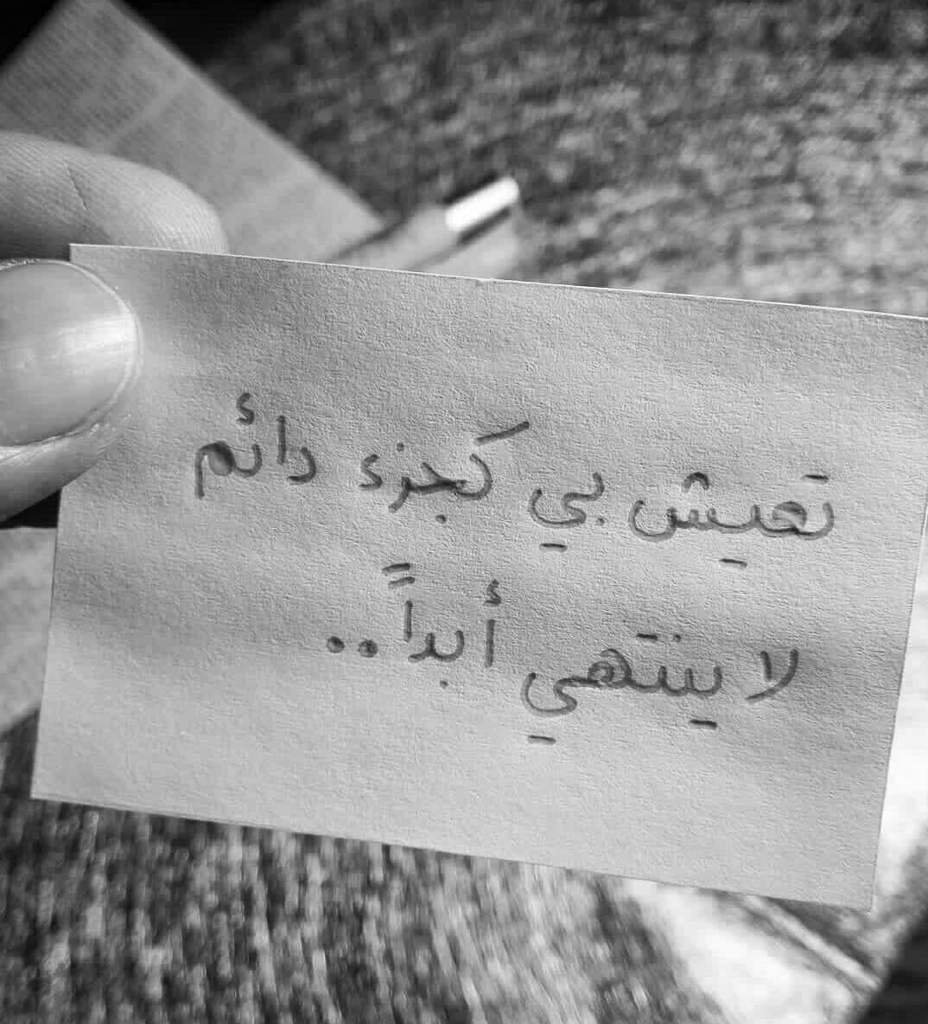 تعيش بي كجزء دائم
لا ينتهي أبداً..